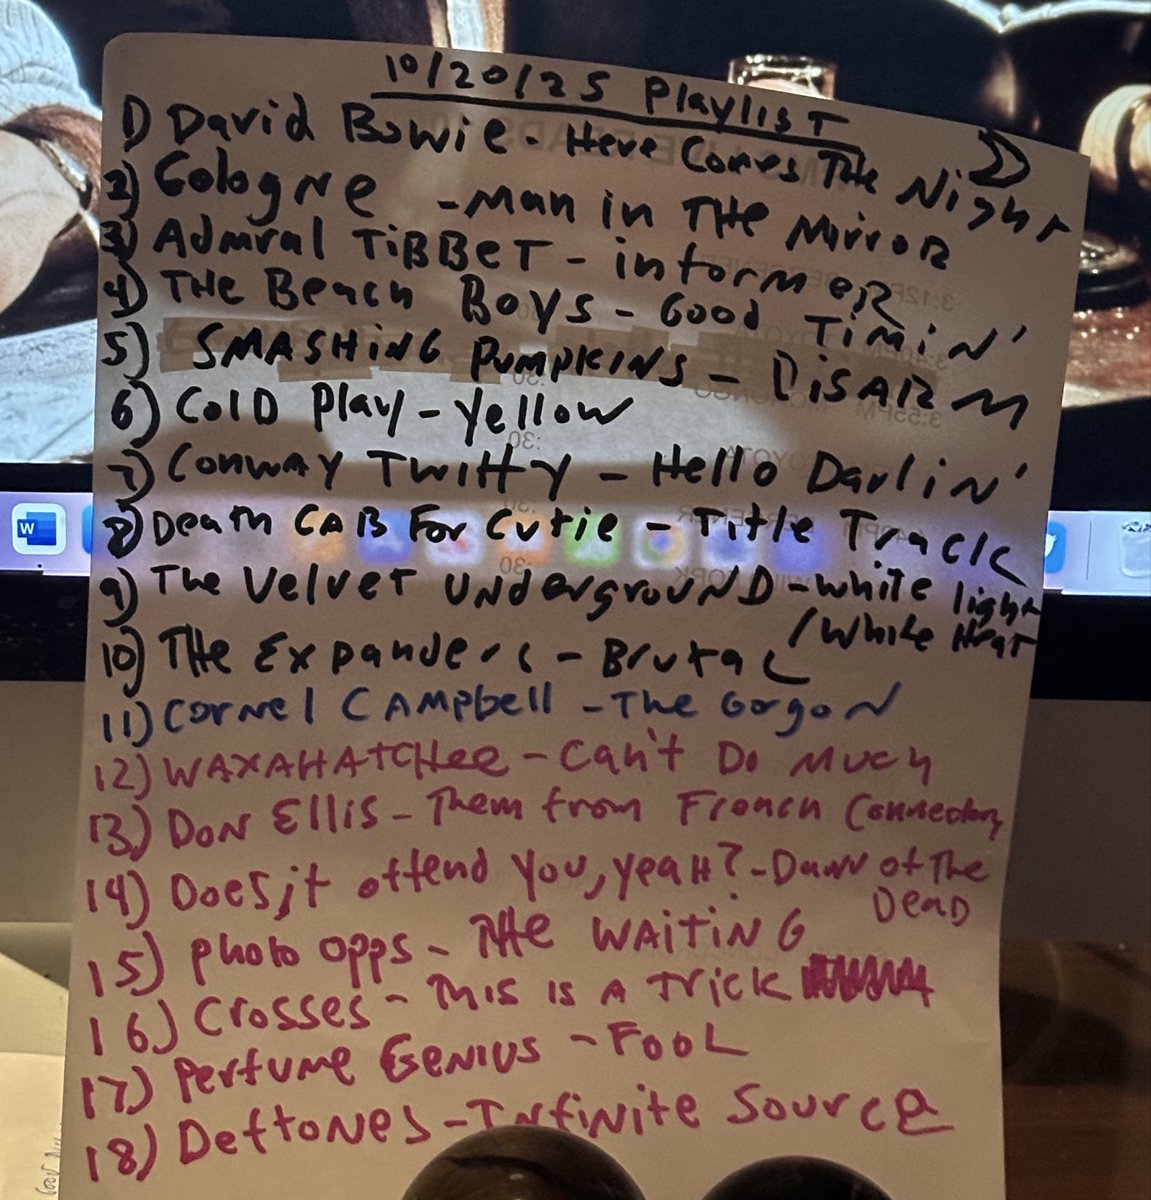 10/20/25 Playlist
1) David Bowie - Here Comes The Night
2) Cologne - Man in THe Mirror
3) Admiral TiBBeT - informeR
4) THe Beach Boys - Good Timin'
5) SMASHiNG PumpKiNS - DiSARM
6) ColD Play - Yellow
7) Conway Twitty - Hello Darlin'
8) Death CAB For Cutie - Title Track
9) The Velvet UNDergrouND - white light
/White Heat
10) THe Expanders - Brutal
11) Cornel CAMpbell - The Gorgon
12) WAXAHATCHee - Can't Do Much
13) DoN Ellis - Them from French Connection
14) Does it offend You, yeaH? - Dawn of The
DeaD
15) Photo opps - THe WAiTiNG
16) Crosses - THis is A Trick
17) Perfume Genius - FooL
18) Deftones - Infinite Source
W